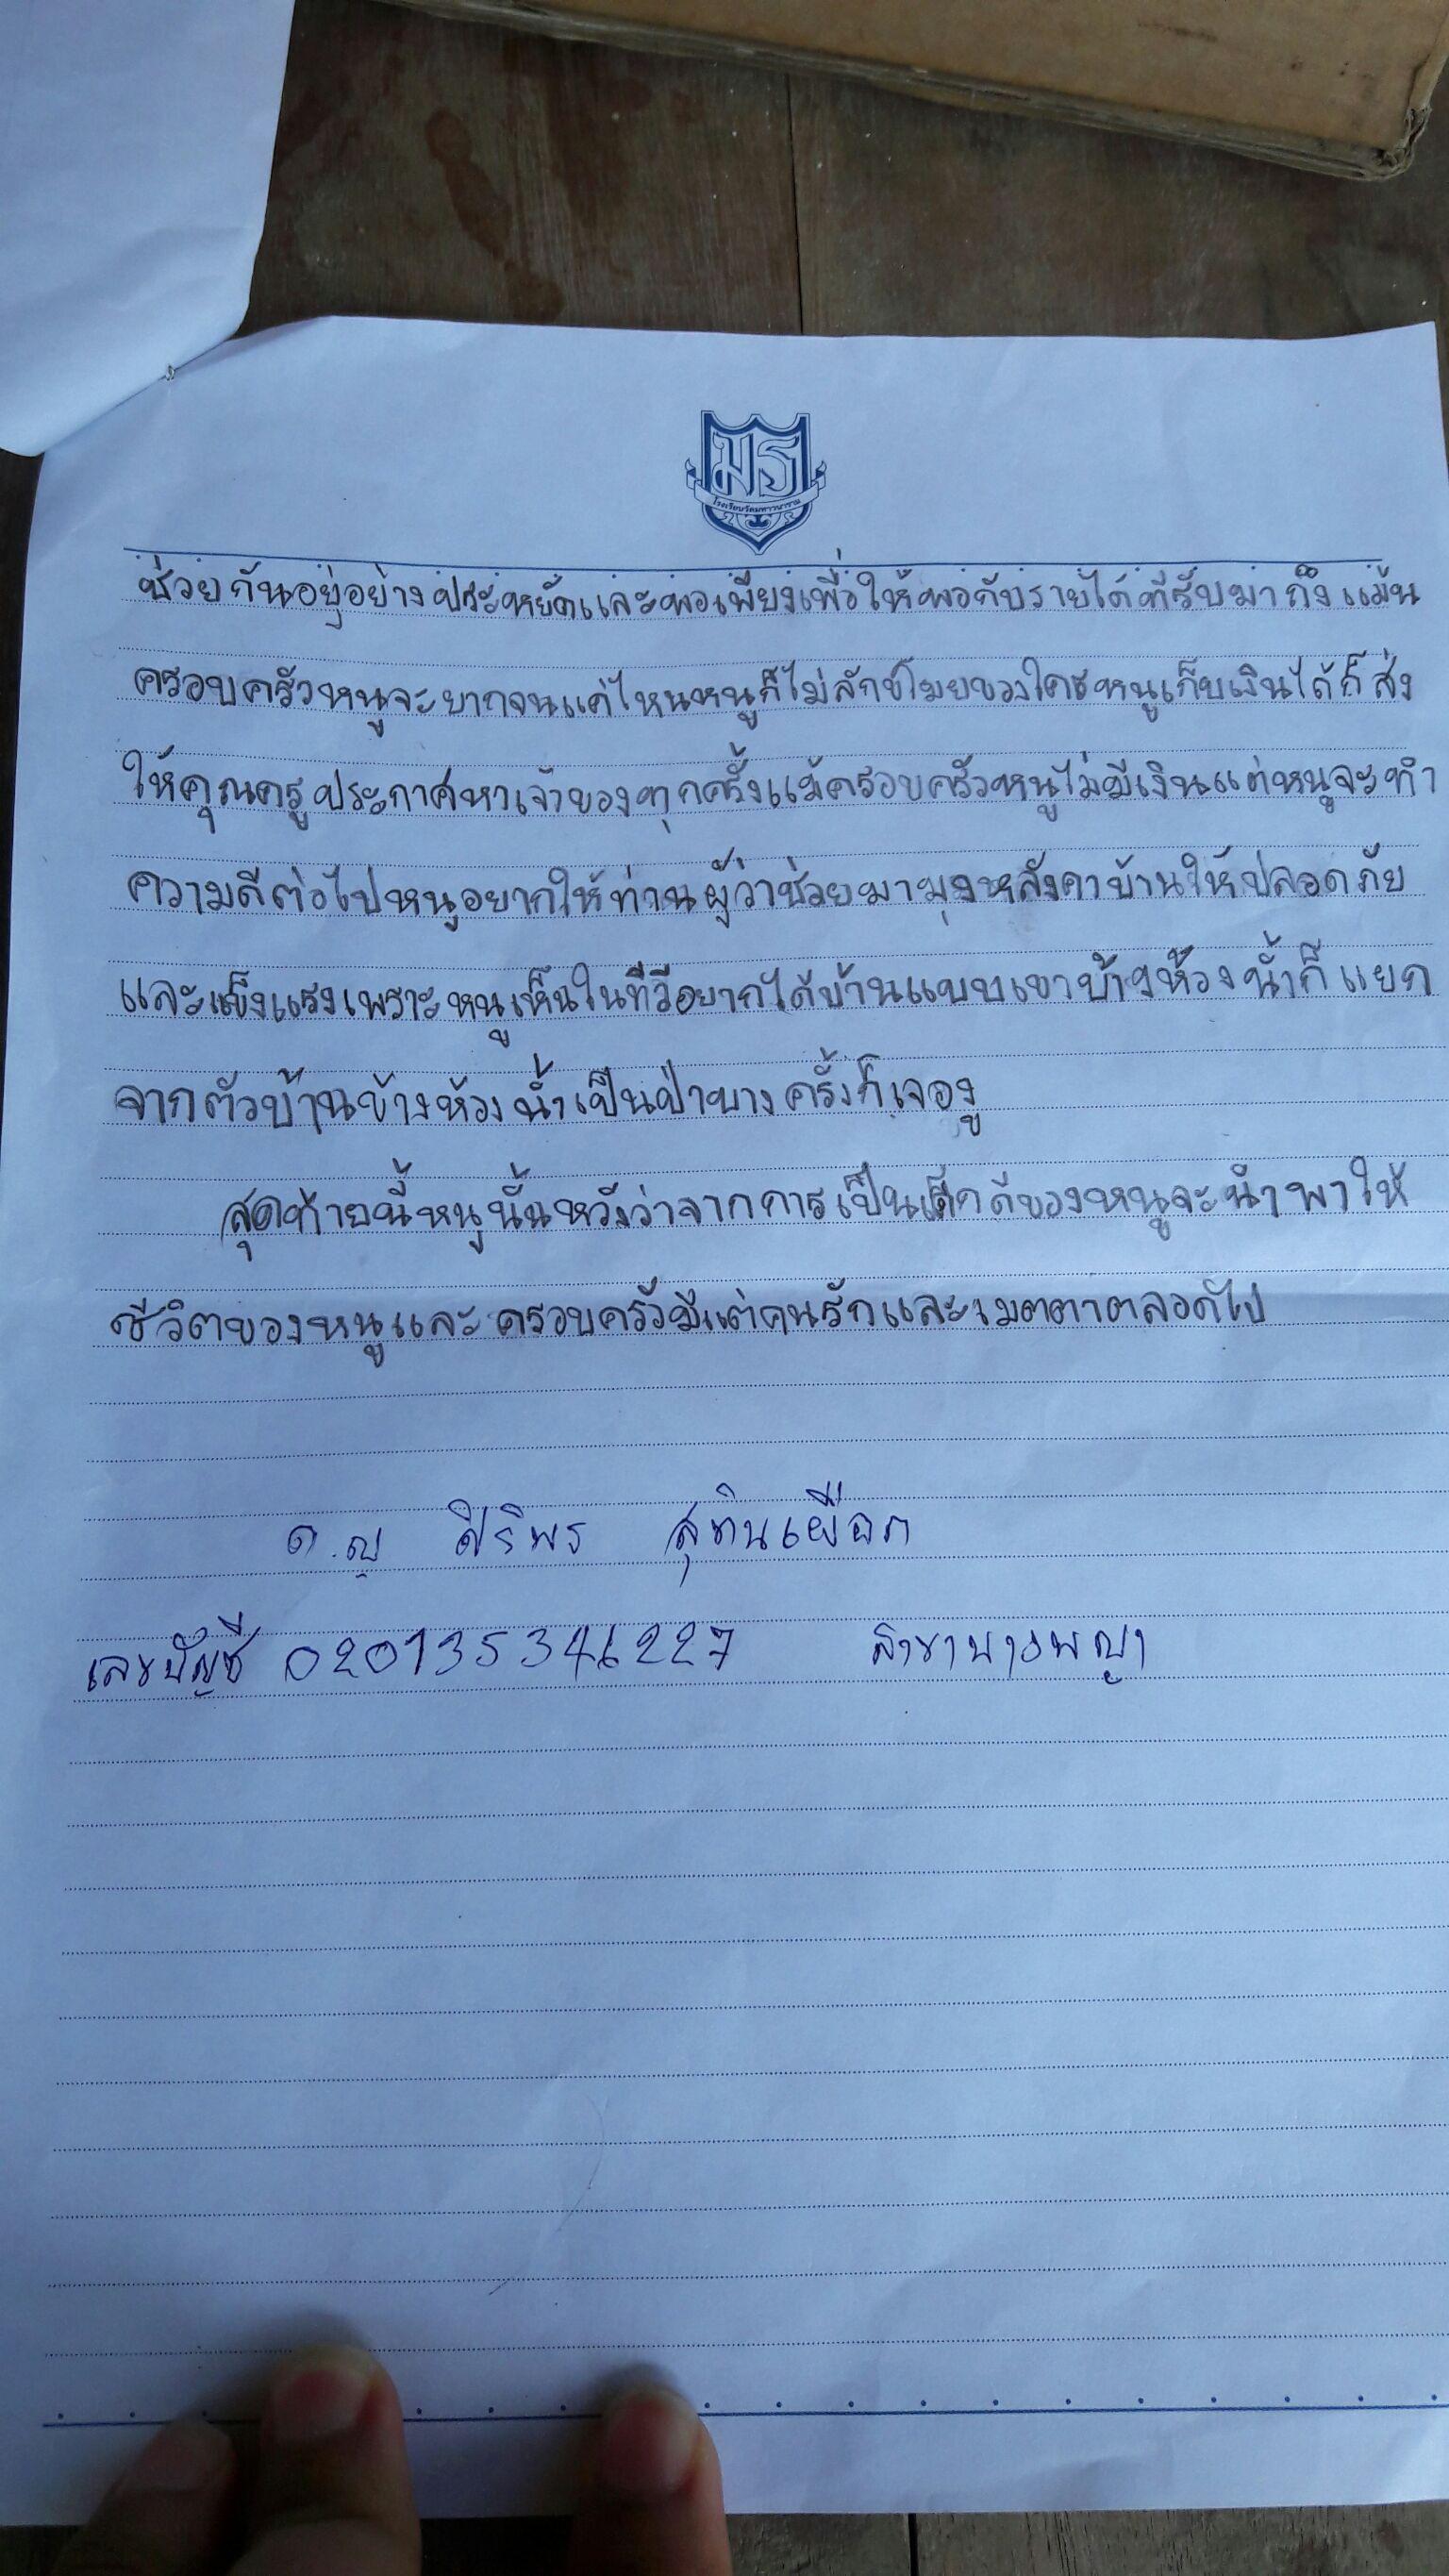 มร
ช่วยกันอยู่อย่างประหยัดและพอเพียงเพื่อให้พอกับรายได้ที่รับมาถึงแม้น
ครอบครัวหนูจะยากจนแค่ไหนหนูก็ไม่ลักขโมยของใครหนูเก็บเงินได้ก็ส่ง
ให้คุณครูประกาศหาเจ้าของทุกครั้งแม้ครอบครัวหนูไม่มีเงินแต่หนูจะทำ
ความดีต่อไปหนูอยากให้ท่านผู้ว่าช่วยมามุงหลังคาบ้านให้ปลอดภัย
และแข็งแรงเพราะหนูเห็นในทีวีอยากได้บ้านแบบเขาบ้างห้องน้ำก็แยก
จากตัวบ้านข้างห้องน้ำเป็นป่าบางครั้งก็เจองู
สุดท้ายนี้หนูนั้นหวังว่าจากการเป็นเด็กดีของหนูจะนำพาให้
ชีวิตของหนูและครอบครัวมีแต่คนรักและเมตตาตลอดไป
ด.ญ ศิริพร สุทินเผือก
เลขบัญชี 020135346227 สาขานาวพญา